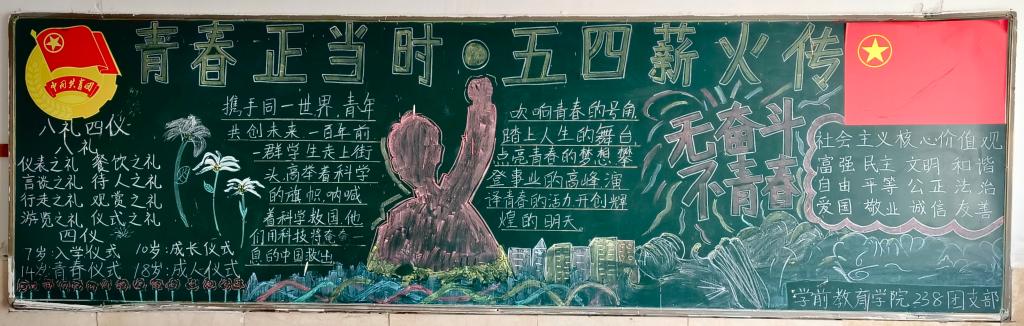 青春正当时·五四薪火传
中国共青团
八礼四仪
八礼
仪表之礼 餐饮之礼
言谈之礼 待人之礼
行走之礼 观赏之礼
游览之礼 仪式之礼
四仪
7岁:入学仪式 10岁:成长仪式
14岁:青春仪式 18岁:成人仪式
携手同一世界,青年
共创未来,一百年前
一群学生走上街
头,高举着科学
的旗帜,呐喊
着科学救国,他
们用科技将奄奄一
息的中国救出
吹响青春的号角
踏上人生的舞台
点亮青春的梦想攀
登事业的高峰演
译青春的活力开创辉
煌的明天
无奋斗
不青春
社会主义核心价值观
富强 民主 文明 和谐
自由 平等 公正 法治
爱国 敬业 诚信 友善
学前教育学院238团支部